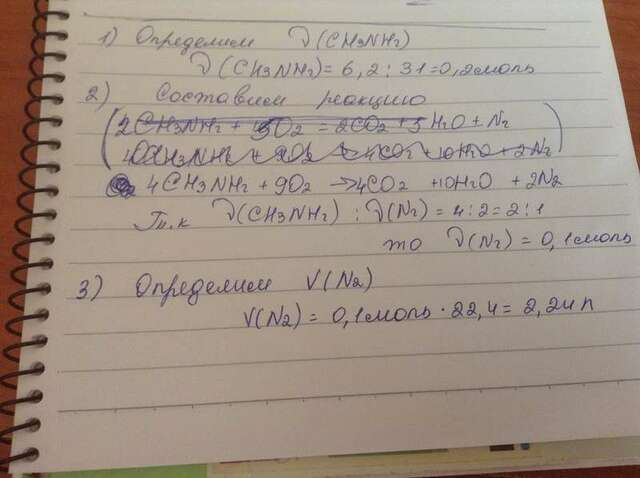 1) Определим ν(CH3NH2)
ν(CH3NH2) = 6,2 : 31 = 0,2 моль
2) Составим реакцию
2CH3NH2 + O2 = 2CO2 + 5H2O + N2
4CH3NH2 + 9O2 → 4CO2 + 10H2O + 2N2
4CH3NH2 + 9O2 → 4CO2 + 10H2O + 2N2
Т.к ν(CH3NH2) : ν(N2) = 4 : 2 = 2 : 1
то ν(N2) = 0,1 моль
3) Определим V(N2)
V(N2) = 0,1 моль · 22,4 = 2,24 л